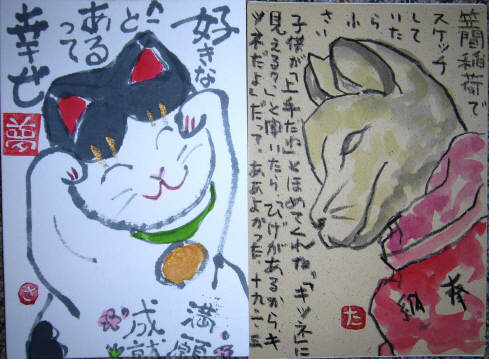 好きな
こと
あるって
幸せ
満願
成就
さ
笠間稲荷で
スケッチ
して
いた
ら
小
さい
子供が「上手だね」とほめてくれた。「キツネに
見える?」と聞いたら「ひげがあるから、キ
ツネだよ」だって。ああよかった。十九.二.
奉納
た